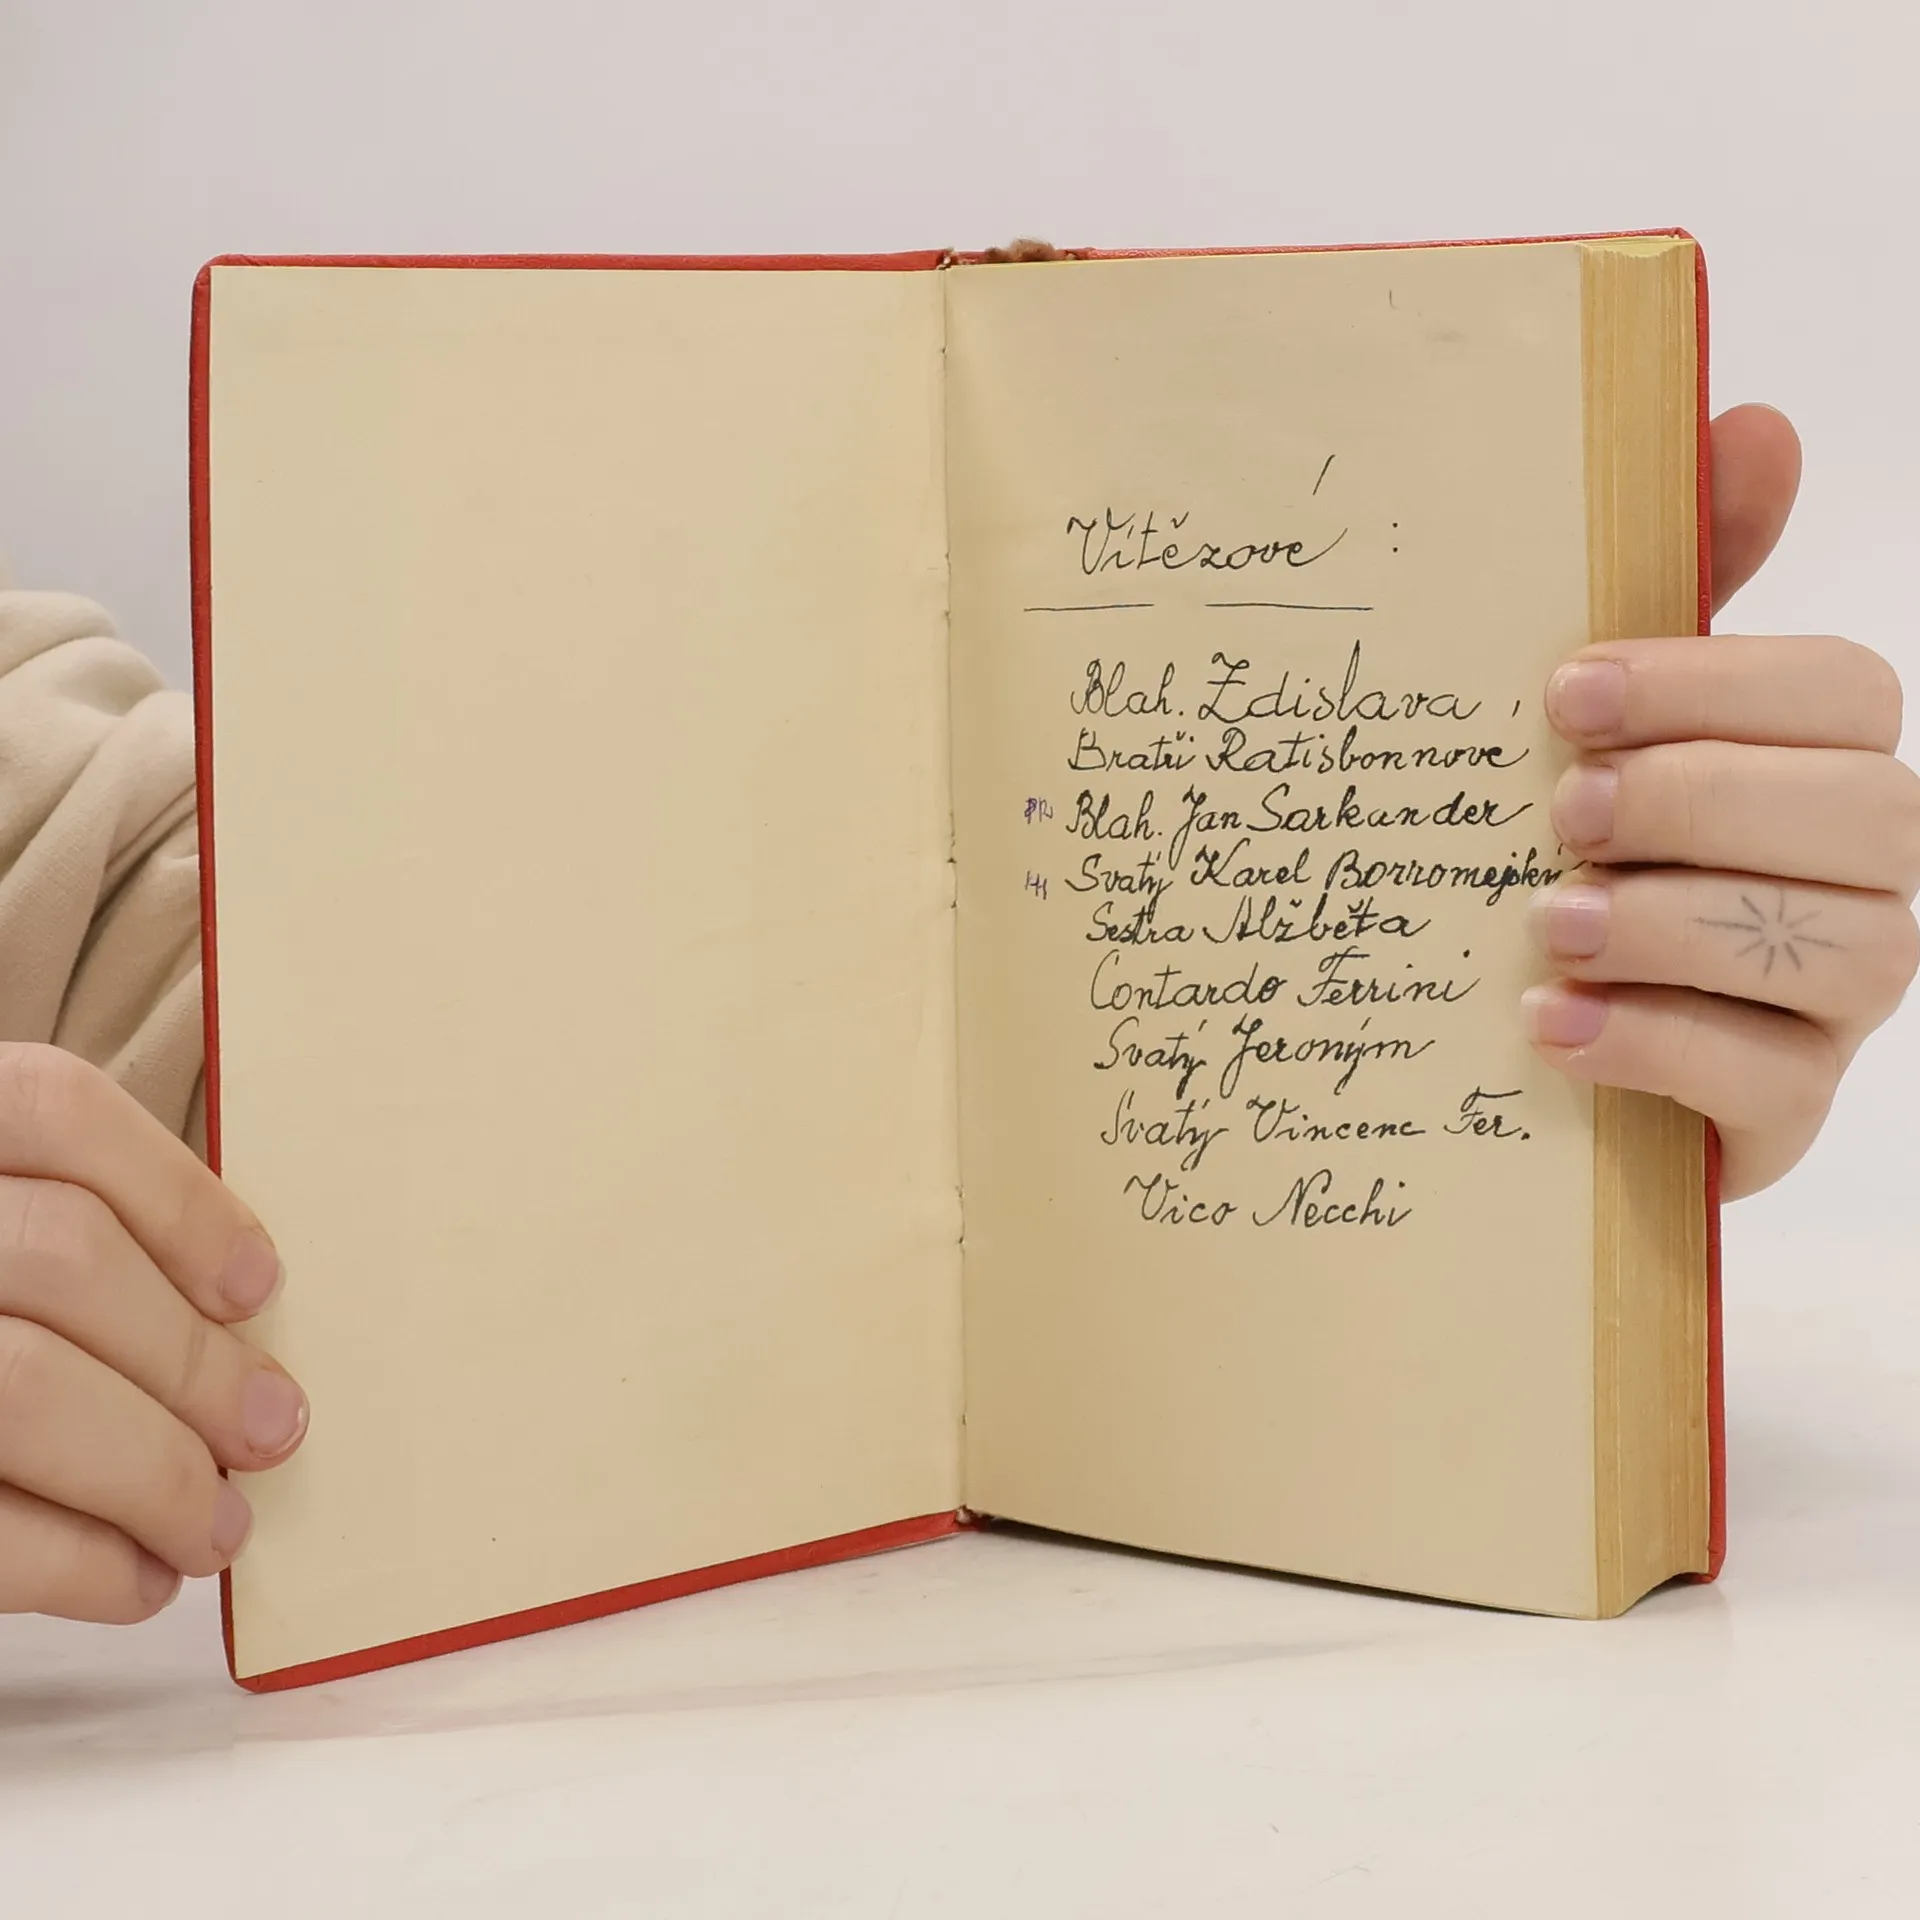 Vítězové :
Blah. Zdislava,
Bratři Ratisbonnove
Blah. Jan Sarkander
Svatý Karel Borromejský
Sestra Alžběta
Contardo Ferrini
Svatý Jeroným
Svatý Vincenc Fer.
Vico Necchi